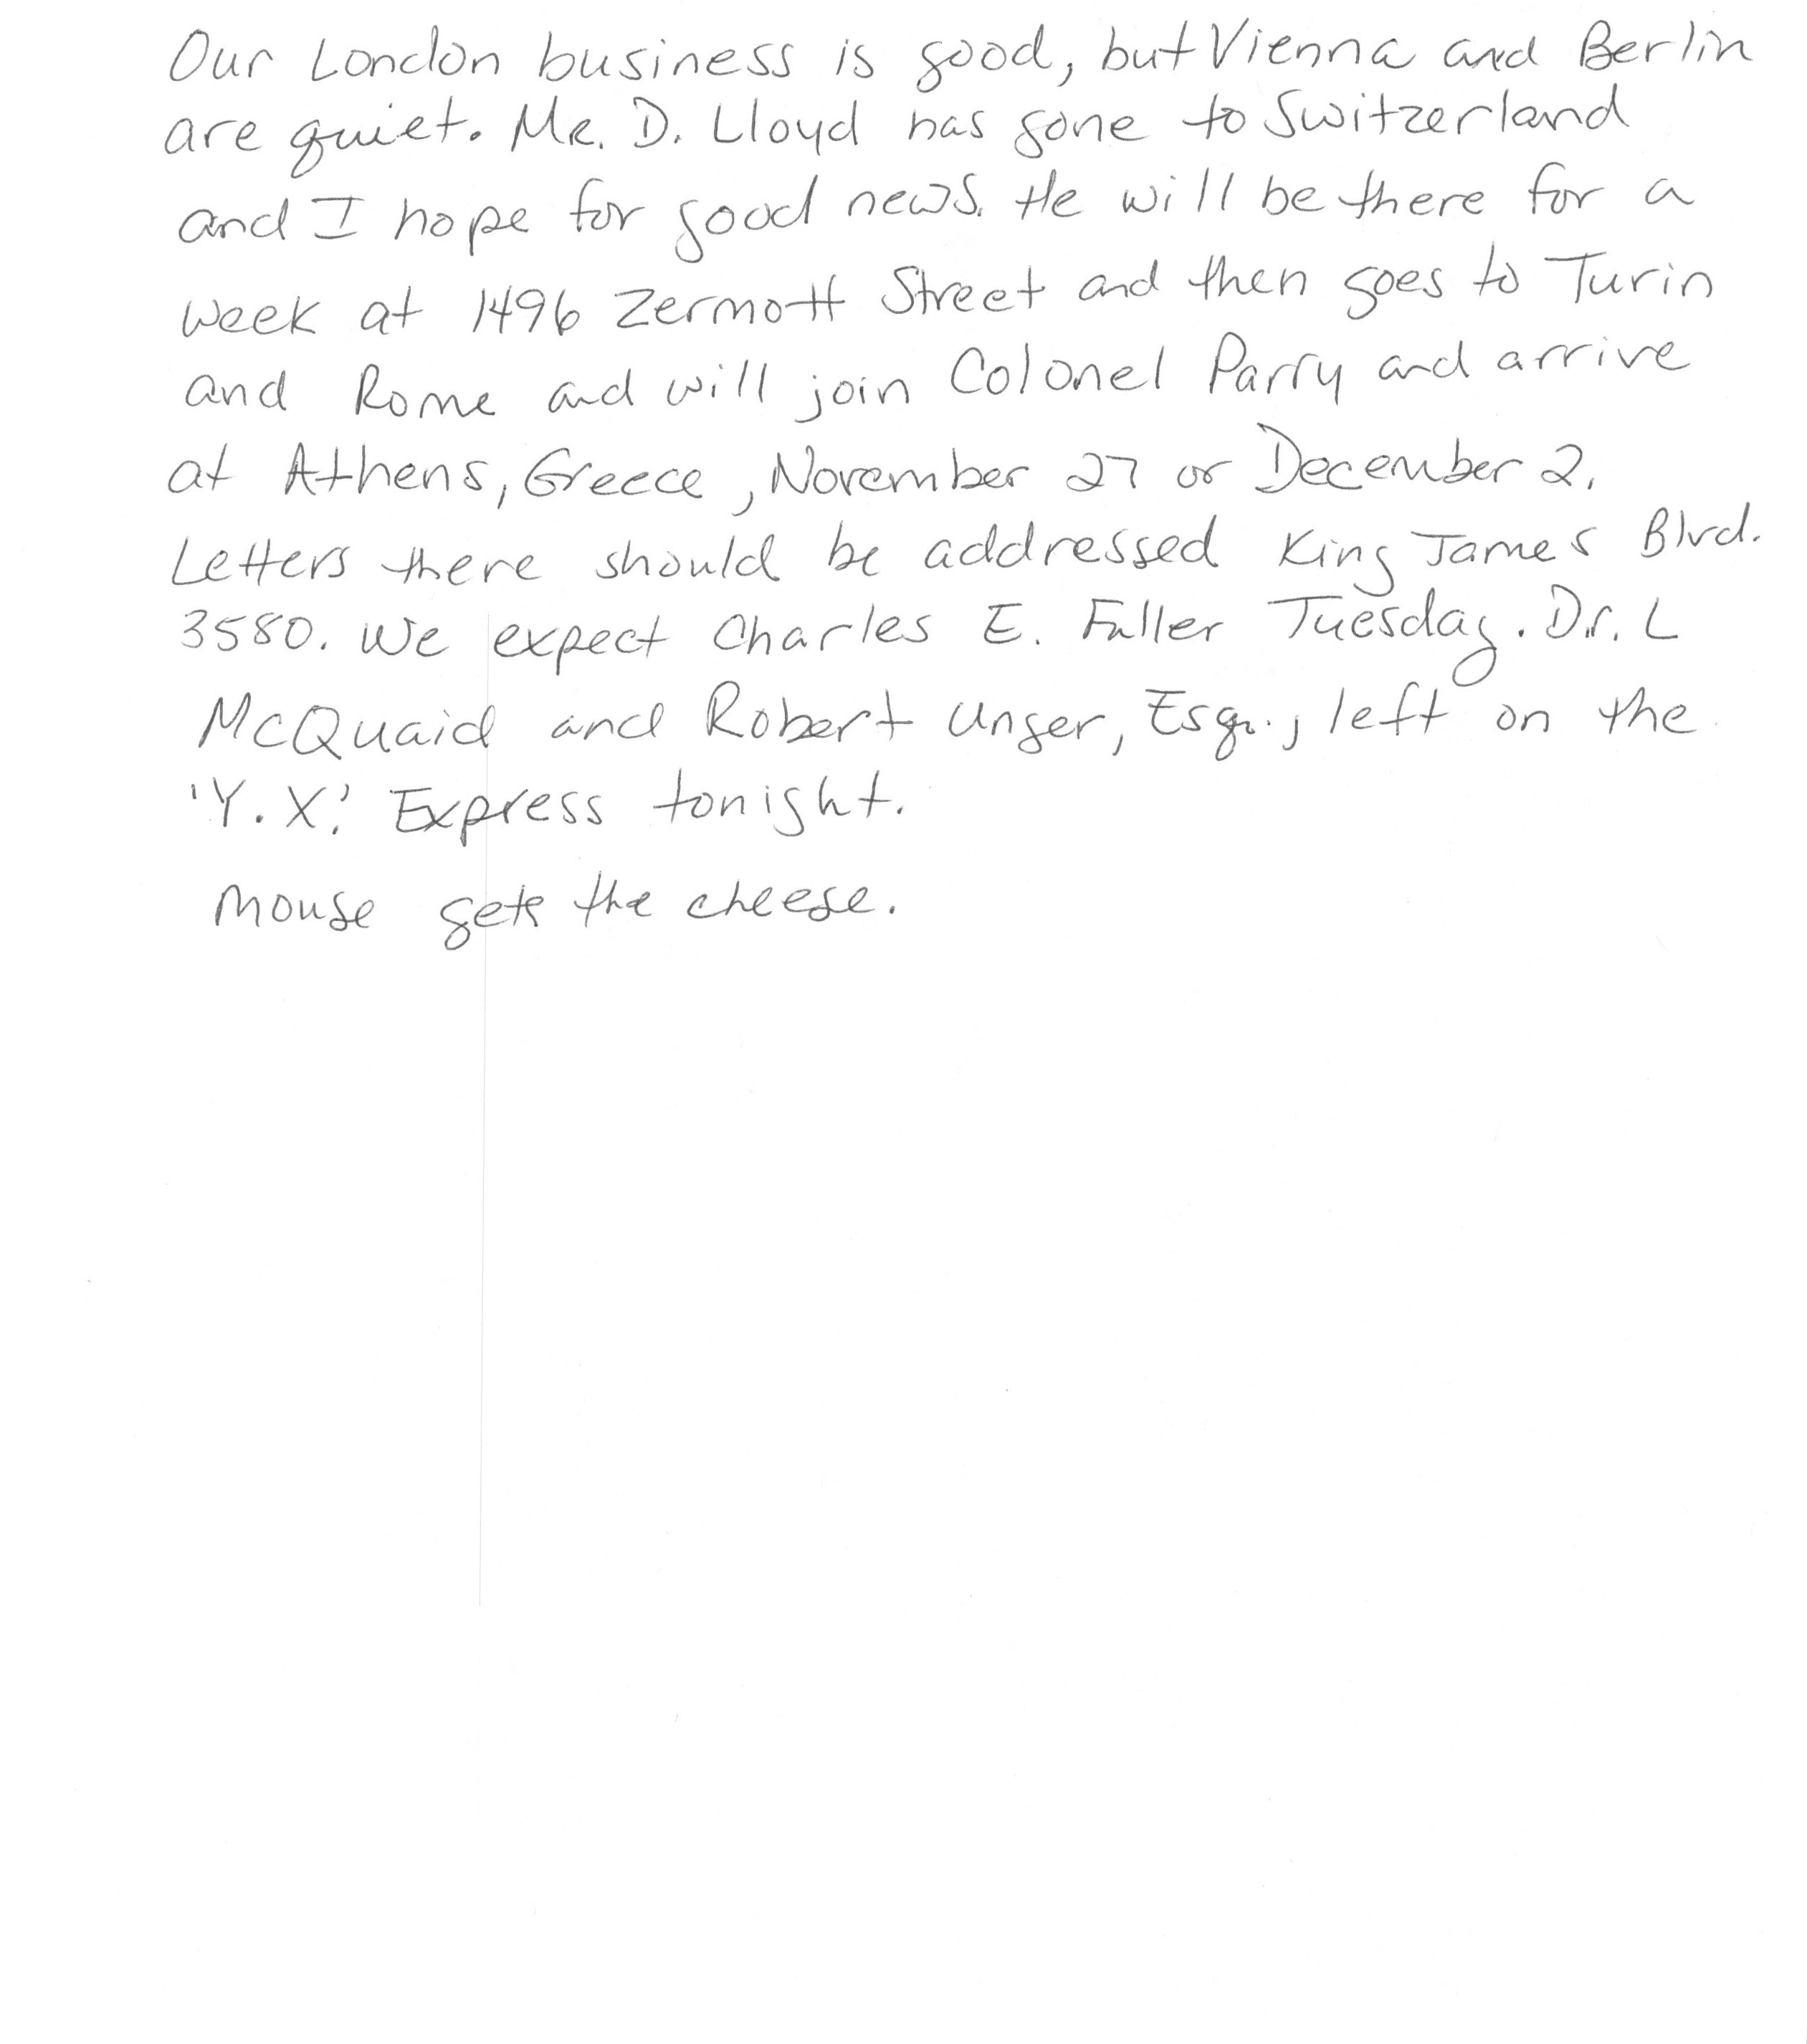 Our London business is good, but Vienna and Berlin
are quiet. Mr. D. Lloyd has gone to Switzerland
and I hope for good news. He will be there for a
week at 1496 Zermott Street and then goes to Turin
and Rome and will join Colonel Parry and arrive
at Athens, Greece, November 27 or December 2.
Letters there should be addressed King James Blvd.
3580. We expect Charles E. Fuller Tuesday. Dr. L
McQuaid and Robert Unger, Esq., left on the
'Y.X.' Express tonight.
Mouse gets the cheese.